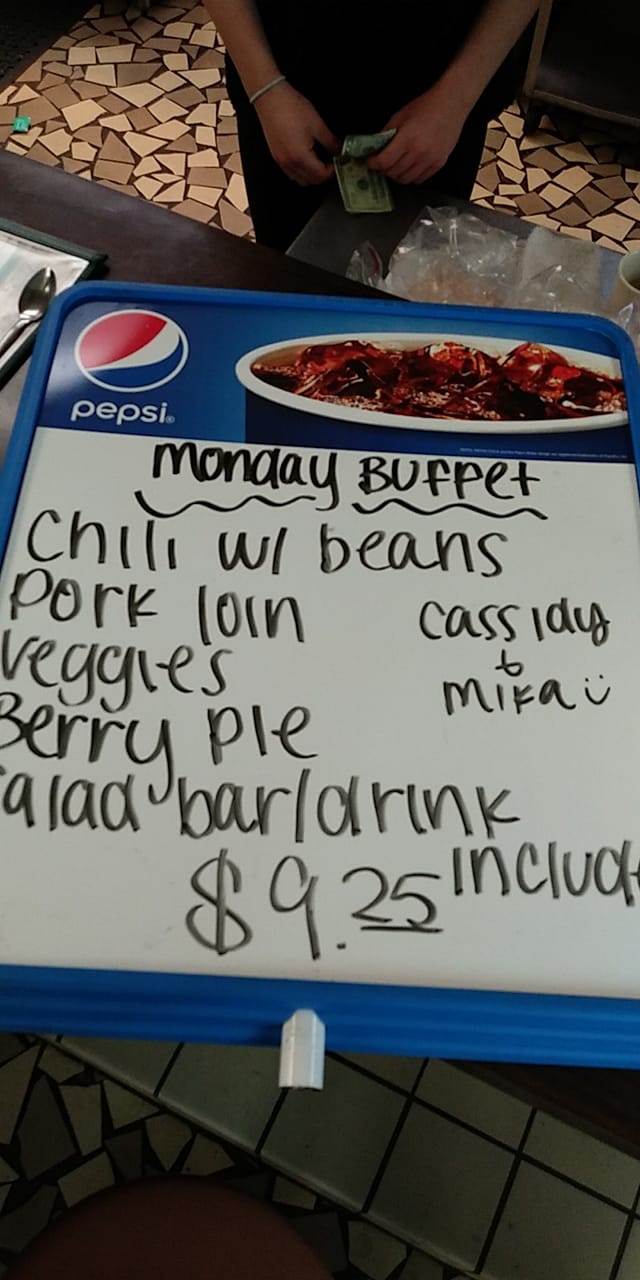 pepsi®
Monday Buffet
Chili w/ beans
Pork loin
Veggies
Cassidy
&
Mika
Berry pie
alad bar/drink
includ
$9.25